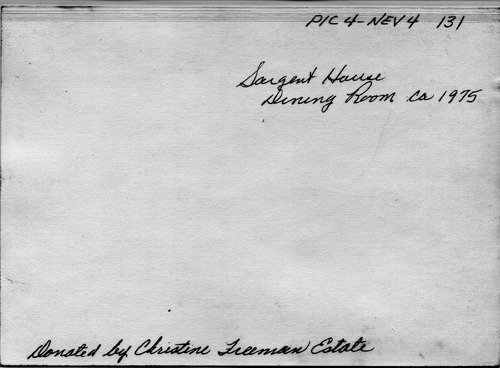 PIC 4-NEV 4 131
Sargent House
Dining Room ca 1975
Donated by Christine Freeman Estate